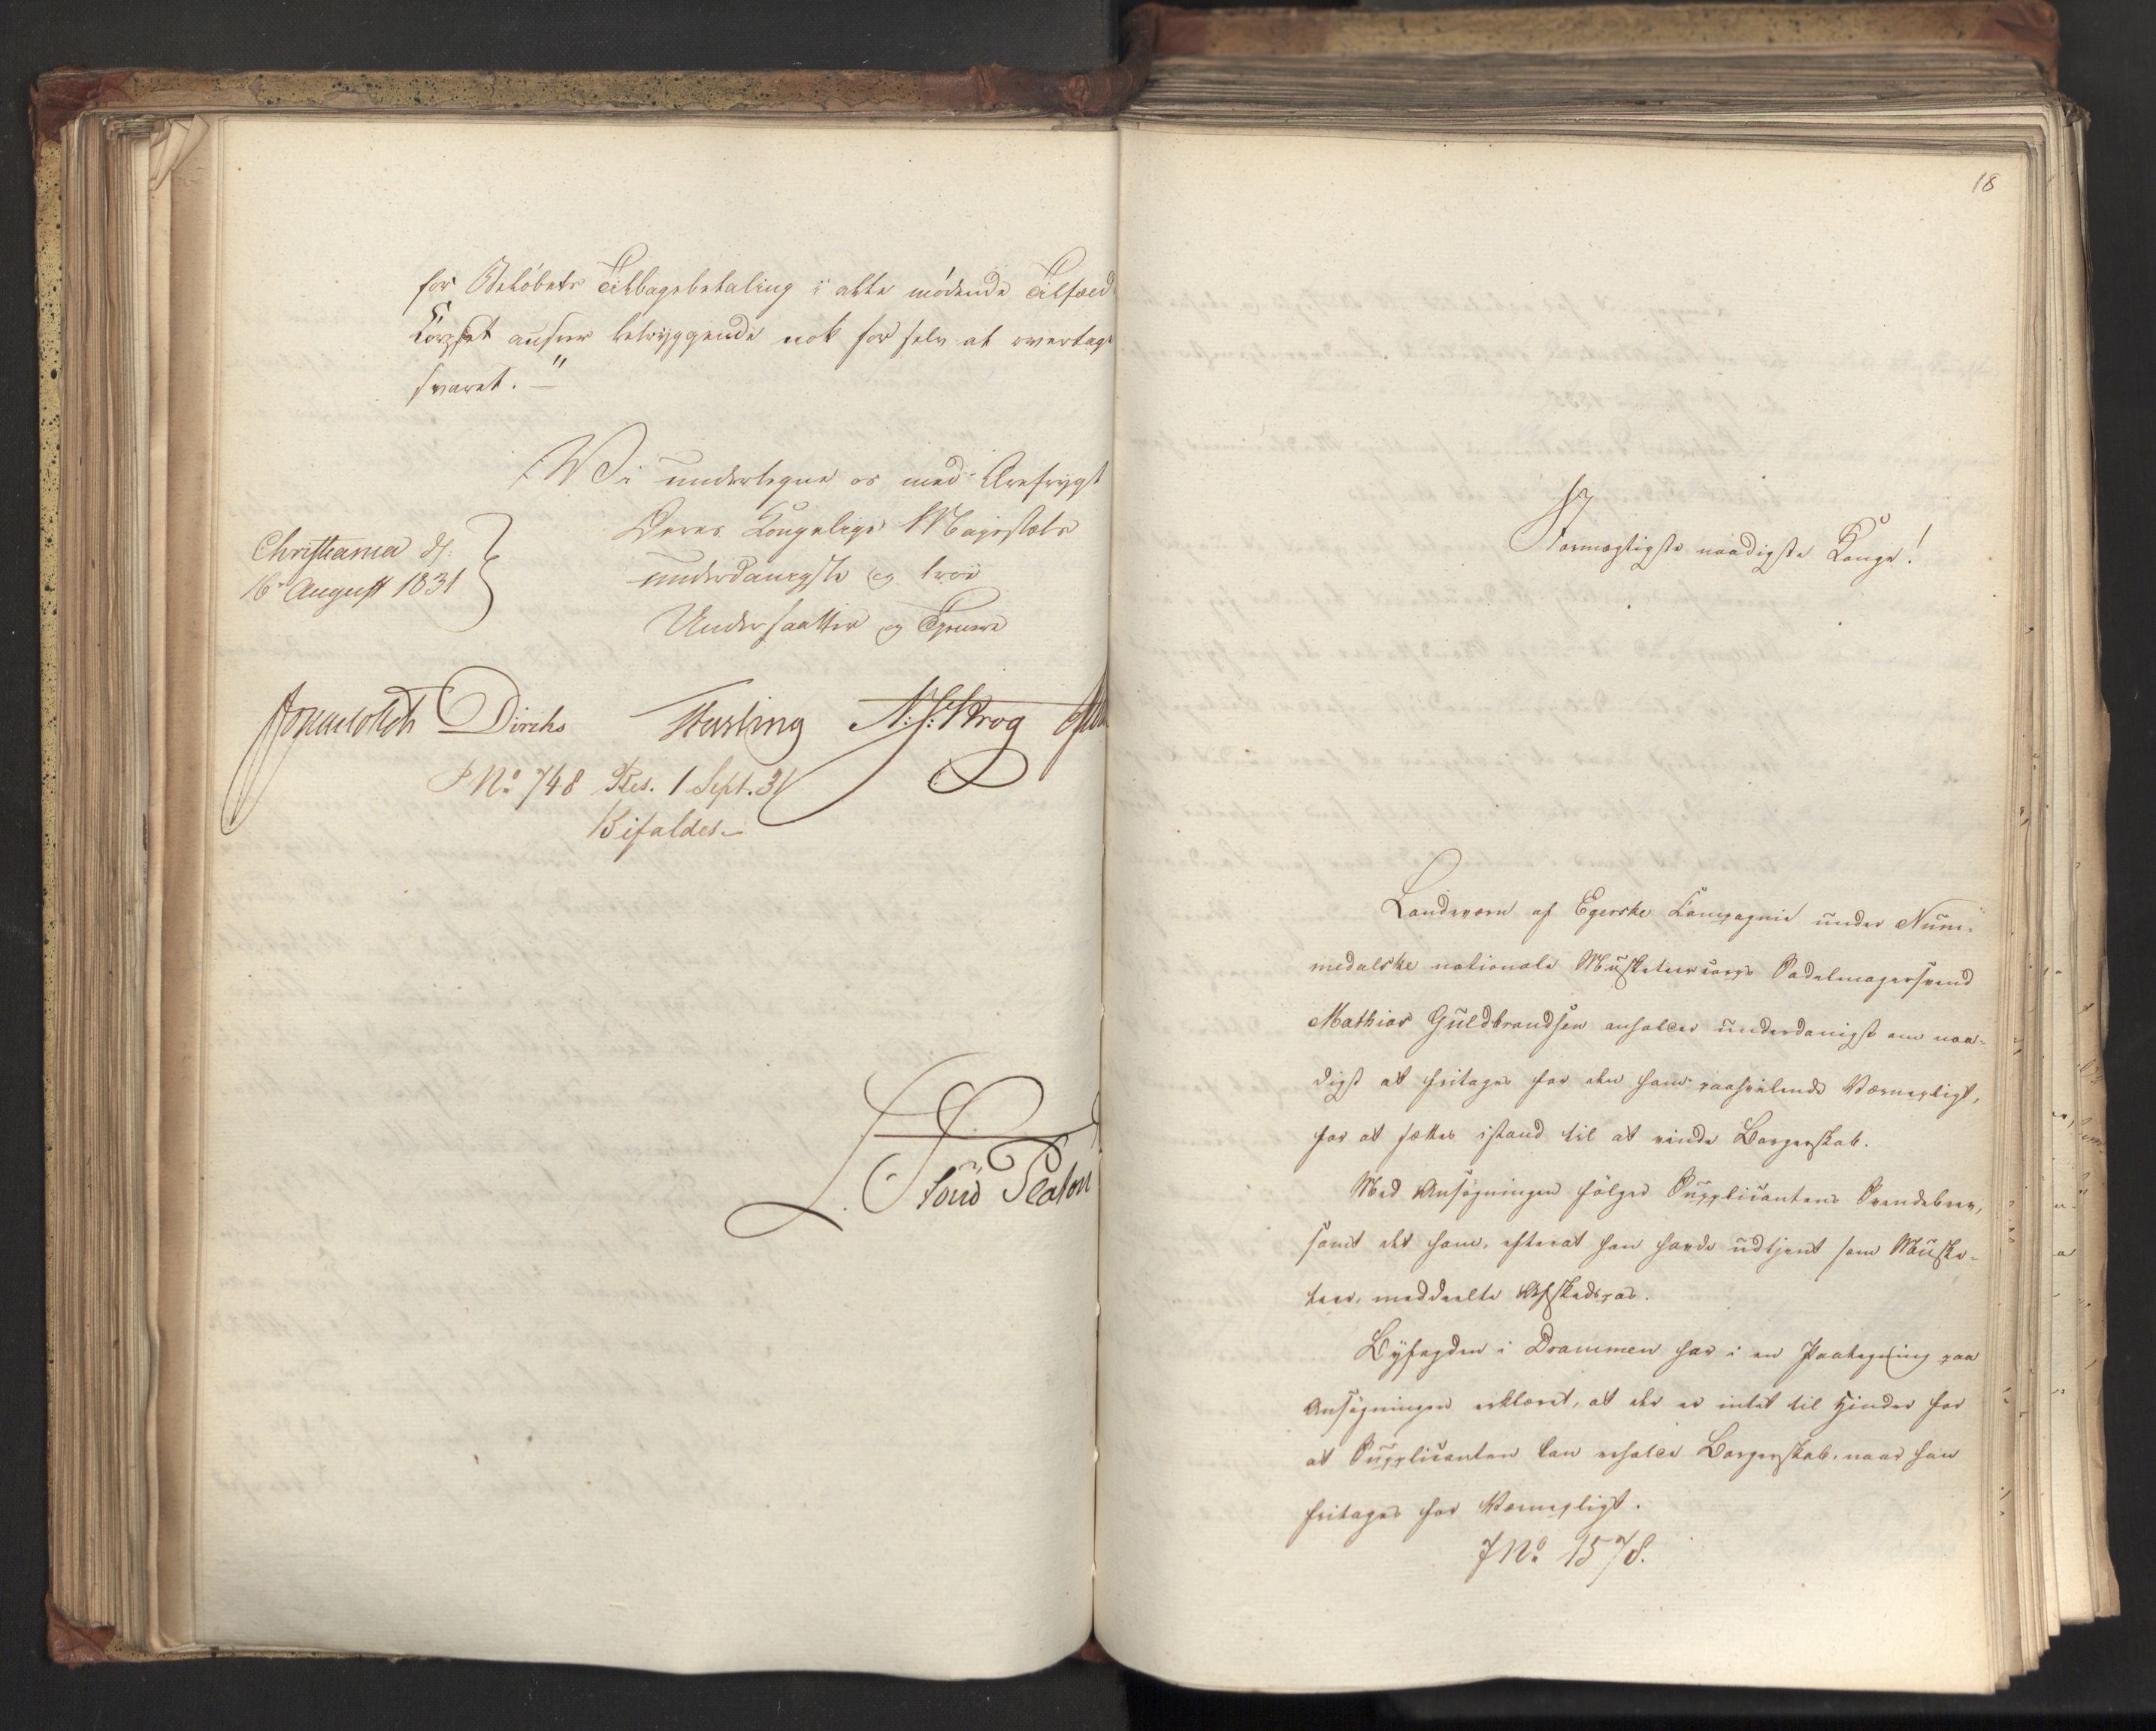 for Beløbets Tilbagebetaling i alle mødende Tilfæld
Corpset ansees betryggende nok for selv at overtage
svaret. —"
Vi undertegne os med Ærefrygt
Deres Kongelige Majestæts
underdanigste og troe
Undersaatter og Tjenere
Christiania d:
16de August 1831
Sommerfeldt Diriks Fasting N: J: Krog
PNo 748 Res. 1 Sept. 31
Bifaldes.
L. Stoud Platou
18
Stormægtigste naadigste Konge!
Landværn af Egerske Compagnie under Num-
medalske nationale Musketeercorps Sadelmagersvend
Mathias Guldbrandsen anholder underdanigst om naa-
digst at fritages for den ham paahvilende Værnepligt,
for at sættes istand til at vinde Borgerskab.
Med Ansøgningen følger Supplicantens Svendebrev,
samt det ham, efterat han havde udtjent som Muske-
teer, meddeelte Afskedspas.
Byfogden i Drammen har i en Paategning paa
Ansøgningen erklæret, at der er intet til Hinder for
at Supplicanten kan erholde Borgerskab, naar han
fritages for Værnepligt.
JNo 1578.